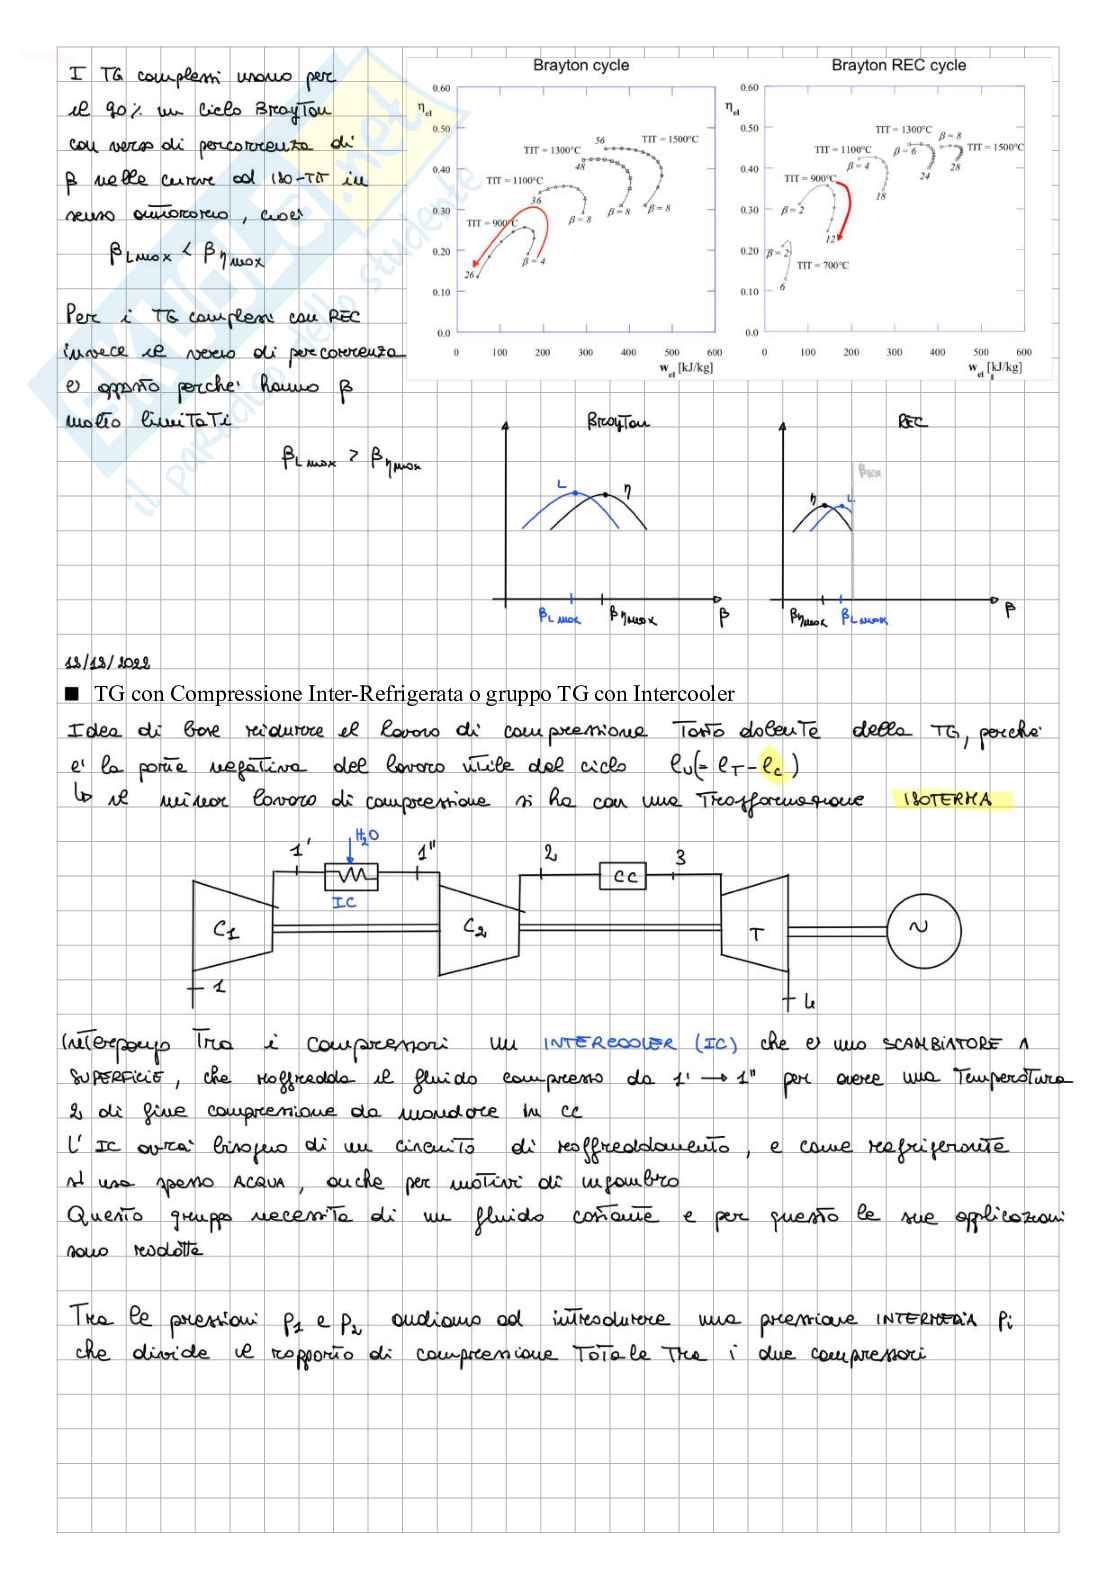 I TG complessi usano per
il 90% un ciclo Brayton
con verso di percorrenza di
β nelle curve ad ISO-TIT in
senso antiorario, cioè
β L max < β η max
Per i TG complessi con REC
invece il verso di percorrenza
è opposto perché hanno β
molto limitati
β L max > β η max
Brayton cycle
η el
0.60
0.50
0.40
0.30
0.20
0.10
0.0
0 100 200 300 400 500 600
w el [kJ/kg]
56 TIT = 1500°C
TIT = 1300°C
48
TIT = 1100°C
36
TIT = 900°C
β = 8 β = 8 β = 8
β = 4
26
Brayton REC cycle
η el
0.60
0.50
0.40
0.30
0.20
0.10
0.0
0 100 200 300 400 500 600
w el [kJ/kg]
TIT = 1300°C β = 8
TIT = 1100°C β = 6 TIT = 1500°C
β = 4
24 28
TIT = 900°C
18
β = 2
12
β = 2
TIT = 700°C
6
Brayton
L η
β L max β η max β
REC
β max
η L
β η max β L max β
12/12/2022
■ TG con Compressione Inter-Refrigerata o gruppo TG con Intercooler
Idea di base ridurre il lavoro di compressione Tasto dolente della TG, perché
è la parte negativa del lavoro utile del ciclo lu(= lT - lc)
↳ il minor lavoro di compressione si ha con una Trasformazione ISOTERMA
1' H2O 1'' 2 3
IC CC
C1 C2 T ~
1 4
Interpongo Tra i compressori un INTERCOOLER (IC) che è uno SCAMBIATORE A
SUPERFICIE, che raffredda il fluido compresso da 1' → 1'' per avere una Temperatura
2 di fine compressione da mandare in CC
L' IC avrà bisogno di un circuito di raffreddamento, e come refrigerante
si usa spesso ACQUA, anche per motivi di ingombro
Questo gruppo necessita di un fluido costante e per questo le sue applicazioni
sono ridotte
Tra le pressioni P1 e P2 andiamo ad introdurre una pressione INTERMEDIA Pi
che divide il rapporto di compressione Totale Tra i due compressori
il paradiso dello studente